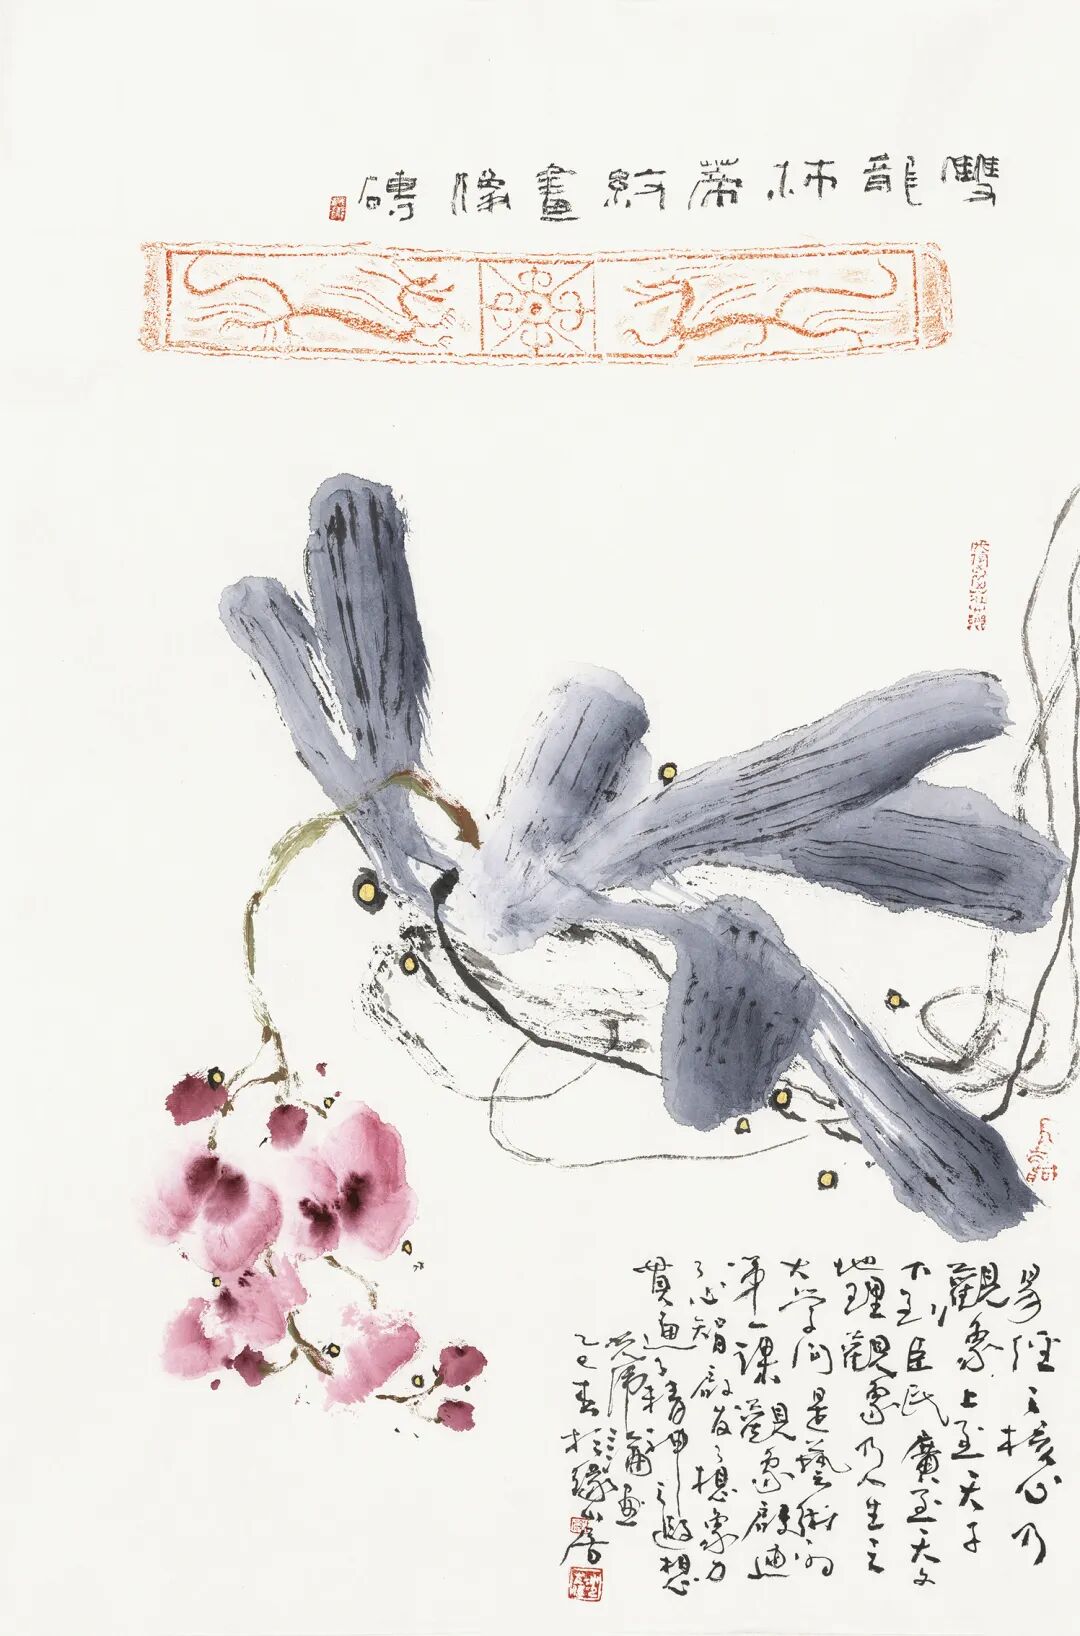 雙龍柿蒂紋畫像磚
易經之核心乃
觀象上至天子
下到臣民廣至天文
地理觀象乃人生之
大學問是藝術的
第一課觀象啟迪
了心智啟發了想象力
貫通了精神之遐想
乙巳春於緣山居